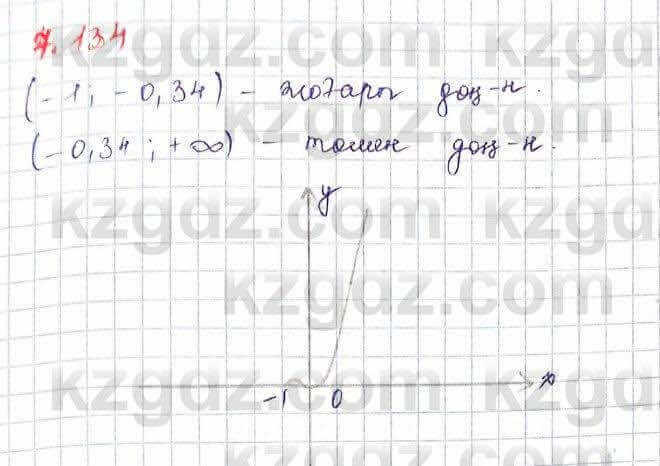 7.134
kzgdz.com kzgdz.com
(-1; -0,34) - жоғары дөң-н.
(-0,34; +∞) - төмен дөң-н.
kzgdz.com kzgdz.com
y
kzgdz.com
kzgdz.com kzgdz.com
x
-1 0
kzgdz.com